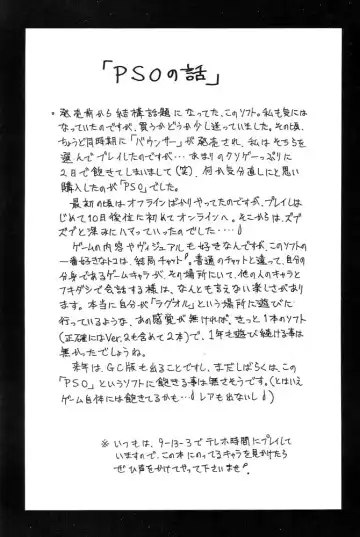 「PSOの話」
・発売前から結構話題になってた、このソフト。私も気には
なっていたのですが、買うかどうか少し迷っていました。その頃、
ちょうど同時期に「バウンサー」が発売され、私はそちらを
選んでプレイしたのですが…あまりのクソゲーっぷりに
2日で飽きてしまいまして(笑)、何か気分直しにと思い
購入したのが「PSO」でした。
最初の頃はオフラインばかりやってたのですが、プレイは
じめて10日後位に初めてオンラインへ。そこからは、ズブ
ズブと深みにハマっていったのでした……
ゲームの内容やヴィジュアルも好きなんですが、このソフトの
一番好きなトコは、結局チャット。普通のチャットと違って、自分の
分身であるゲームキャラが、その場所にいて、他の人のキャラと
フキダシで会話する様は、なんとも言えない楽しさがあり
ます。本当に自分が「ラグオル」という場所に遊びに
行っているような、あの感覚が無ければ、きっと1本のソフト
(正確にはVer.2も含めて2本)で、1年も遊び続ける事は
無かったでしょうね。
来年は、GC版も出ることですし、まだしばらくは、この
「PSO」というソフトに飽きる事は無さそうです。(とはいえ
ゲーム自体には飽きてるかも…レアも出ないし)
※いつもは、9-13-3でテレホ時間にプレイして
いますので、この本にのってるキャラを見かけたら
ぜひ声をかけてやって下さいませ。